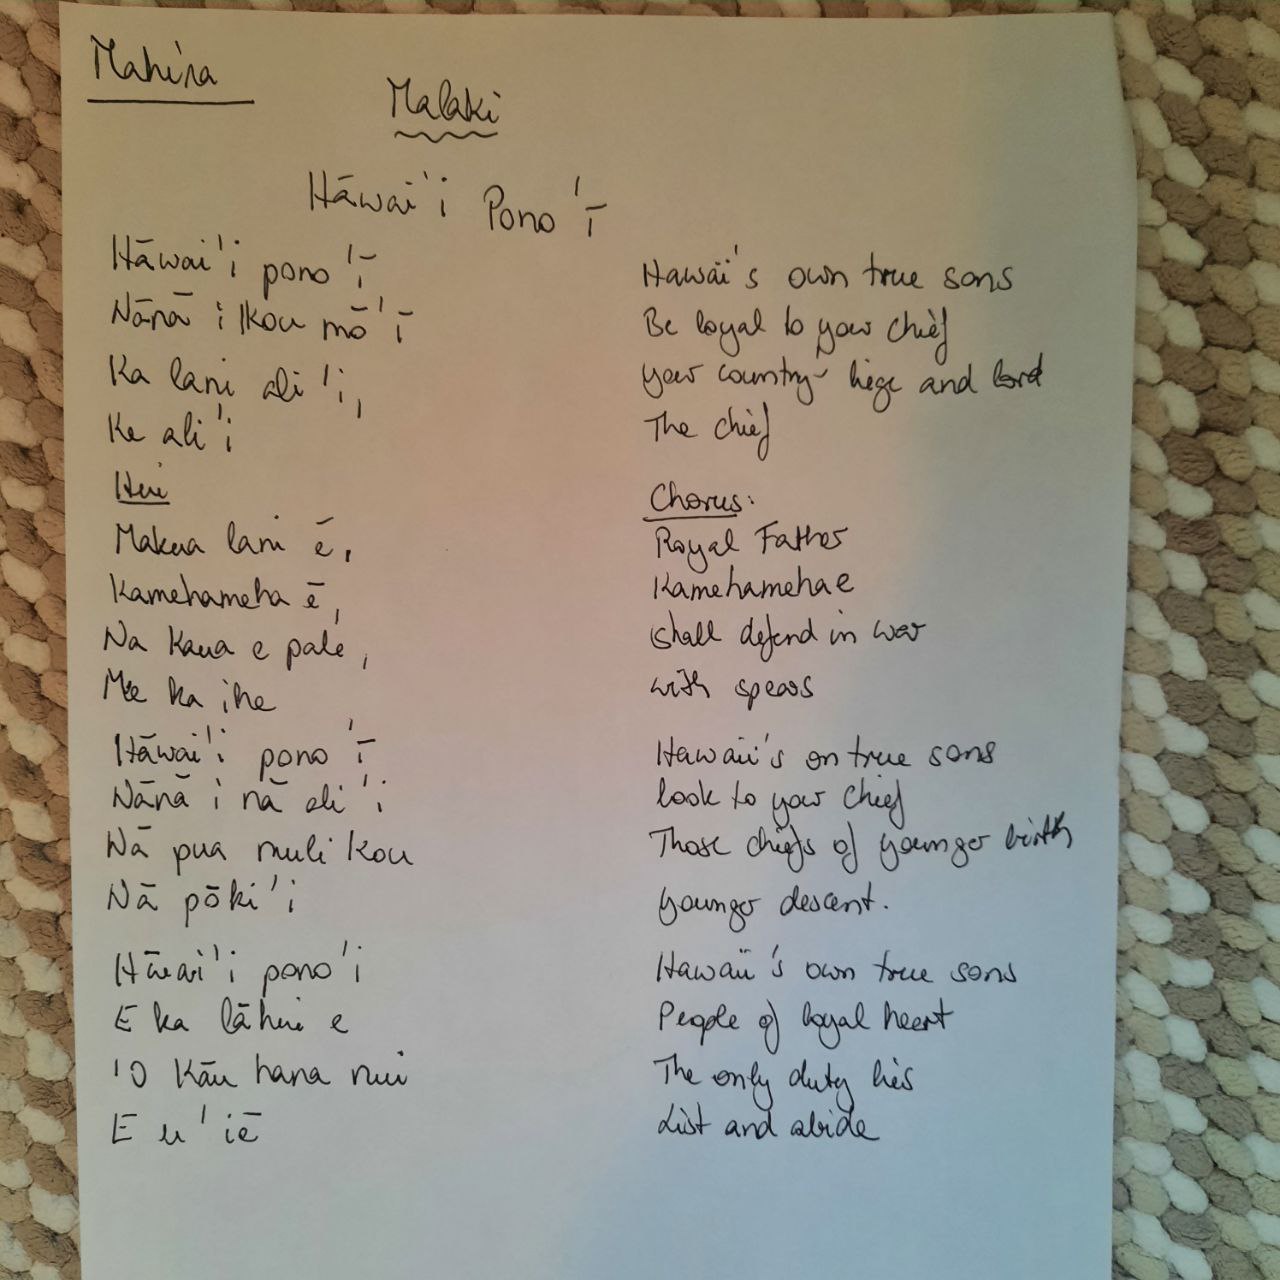 Mahina
Malaki
Hāwai'i Pono 'ī
Hāwai'i pono 'ī
Nānā i Kou mō'ī
Ka lani ali'i,
Ke ali'i
Hui
Makua lani ē,
Kamehameha ē,
Na Kaua e pale,
Me ka ihe
Hāwai'i pono 'ī
Nānā i nā ali'i
Nā pua muli kou
Nā pōki'i
Hāwai'i pono'i
E ka lāhui e
'O Kāu hana nui
E u'iē
Hawaii's own true sons
Be loyal to your chief
your country liege and lord
The chief
Chorus:
Royal Father
Kamehameha e
shall defend in war
with spears
Hawaii's on true sons
look to your chief
Those chiefs of younger birth
younger descent.
Hawaii's own true sons
People of loyal heart
The only duty lies
List and abide